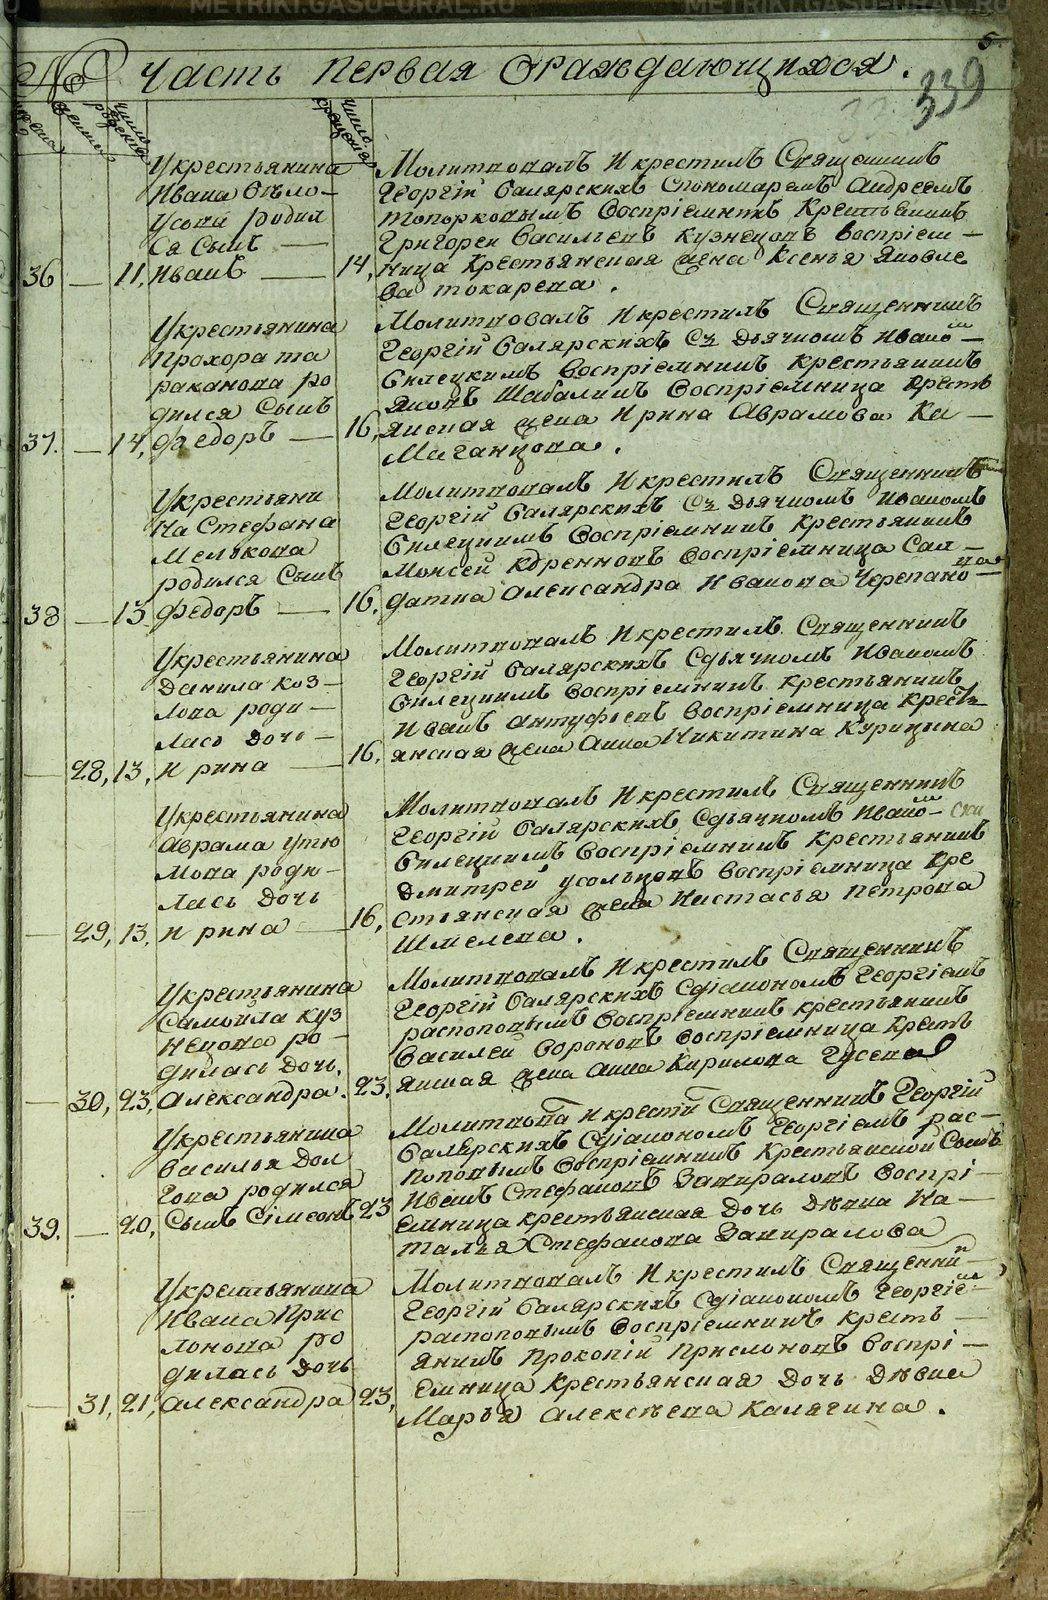 METRIKI.GASU-URAL.RU
5
№ Часть первая ораждающихся.
339
число рождения
число крещения
Укрестьянина
Ивана Бѣло-
усова родил
ся Сынъ
36 11, Иванъ 14,
Молитвовалъ и крестилъ Священникъ
Георгій Салярскихъ Спономаремъ Андреемъ
Топорковымъ Воспріемникъ Крестьянинъ
Григореи Васильевъ Кузнецовъ Воспріем-
ница Крестьянская жена Ксенья Яковле
ва токарева.
Укрестьянина
Прохора та
раканова ро
дился Сынъ
37. 14, Федоръ 16,
Молитвовалъ и крестилъ Священникъ
Георгій Салярскихъ Съ Дьячкомъ Ивано-
Силецкимъ Воспріемникъ крестьянинъ
Яковъ Шабалинъ Воспріемница Кресть
янская жена Ирина Аврамова Ка-
Маганцова.
Укрестьяни
на Стефана
Мелькова
родился Сынъ
38 13 Федоръ 16,
Молитвовалъ и крестилъ Священникъ
Георгій Салярскихъ Съ Дьячкомъ Иваномъ
Силецкимъ Воспріемникъ Крестьянинъ
Моисей Воспріемница Сал-
датка Александра Иванова Черепано-
ва
Укрестьянина
Данила коз-
лова роди-
лась дочь-
28, 13, Ирина 16,
Молитвовалъ и крестилъ Священникъ
Георгій Салярскихъ Сдьячкомъ Иваномъ
Силецкимъ Воспріемникъ Крестьянинъ
Иванъ Антуфьевъ Воспріемница Кресть
янская жена Анна Никитина Курицына
Укрестьянина
Аврама Утю
мова роди-
лась дочь
29, 13, Ирина 16,
Молитвовалъ и крестилъ Священникъ
Георгій Салярскихъ Сдьячкомъ Ивано-
Силецкимъ Воспріемникъ крестьянинъ
Дмитрей усольцовъ Воспріемница Кре
стьянская жена Настасья Петрова
Шмелева.
Укрестьянина
Самойла куз
нецова ро-
дилась дочь.
30, 23, Александра. 23,
Молитвовалъ и крестилъ Священникъ
Георгій Салярскихъ Сдіакономъ Георгіемъ
распоповымъ Воспріемникъ крестьянинъ
Василей Вороновъ Воспріемница Кресть
янская жена Анна Кирилова Гусева
Укрестьянина
Василья Дол
гова родился
39. 20, Сынъ Сімеонъ 23
Молитвова и крести Священникъ Георгій
Салярскихъ Сдіакономъ Георгіемъ рас-
поповымъ Воспріемникъ Крестьянской Сынъ
Иванъ Стефановъ Запираловъ Воспрі-
емница крестьянская дочь дѣвка На-
талья Стефанова Запиралова
Укрестьянина
Ивана Прис
лонова ро
дилась дочь
31, 21, Александра 23,
Молитвовалъ и крестилъ Священни
Георгій Салярскихъ Сдіакономъ Георгіе-
распоповымъ Воспріемникъ кресть-
янинъ Прокопій Прислоновъ Воспрі-
емница Крестьянская дочь дѣвка
Марья Алексѣева Калягина.
METRIKI.GASU-URAL.RU